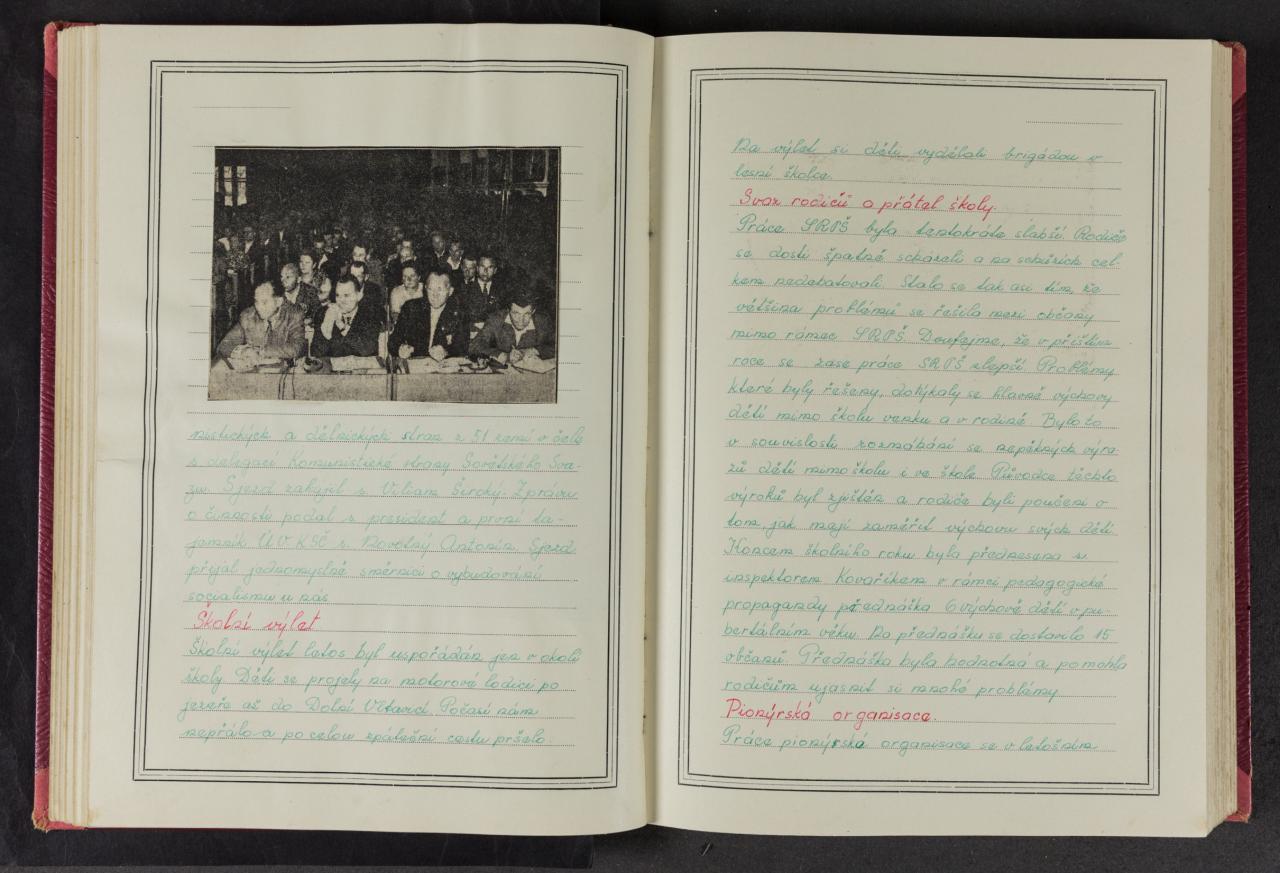 nistických a dělnických stran z 51 zemí v čele
s delegací Komunistické strany Sovětského Sva-
zu. Sjezd zahájil s. Viliam Široký. Zprávu
o činnosti podal s. president a první ta-
jemník ÚV KSČ s. Novotný Antonín. Sjezd
přijal jednomyslně směrnici o vybudování
socialismu u nás.
Školní výlet
Školní výlet letos byl uspořádán jen v okolí
školy. Děti se projely na motorové lodici po
jezeře až do Dolní Vltavici. Počasí nám
nepřálo a po celou zpáteční cestu pršelo.
Na výlet si děti vydělali brigádou v
lesní školce.
Svaz rodičů a přátel školy.
Práce SRPŠ byla tentokráte slabší. Rodiče
se dosti špatně scházeli a na schůzích cel-
kem nedebatovali. Stalo se tak asi tím, že
většina problémů se řešila mezi občany
mimo rámec SRPŠ. Doufejme, že v příštím
roce se zase práce SRPŠ zlepší. Problémy
které byly řešeny, dotýkaly se hlavně výchovy
dětí mimo školu venku a v rodině. Bylo to
v souvislosti rozmáhání se nepěkných výra-
zů dětí mimo školu i ve škole. Původce těchto
výroků byl zjištěn a rodiče byli poučeni o
tom, jak mají zaměřit výchovu svých dětí.
Koncem školního roku byla přednesena s.
inspektorem Kovaříkem v rámci pedagogické
propagandy přednáška O výchově dětí v pu-
bertálním věku. Na přednášku se dostavilo 15
občanů. Přednáška byla hodnotná a pomohla
rodičům ujasnit si mnohé problémy
Pionýrská organisace.
Práce pionýrská organisace se v letošním